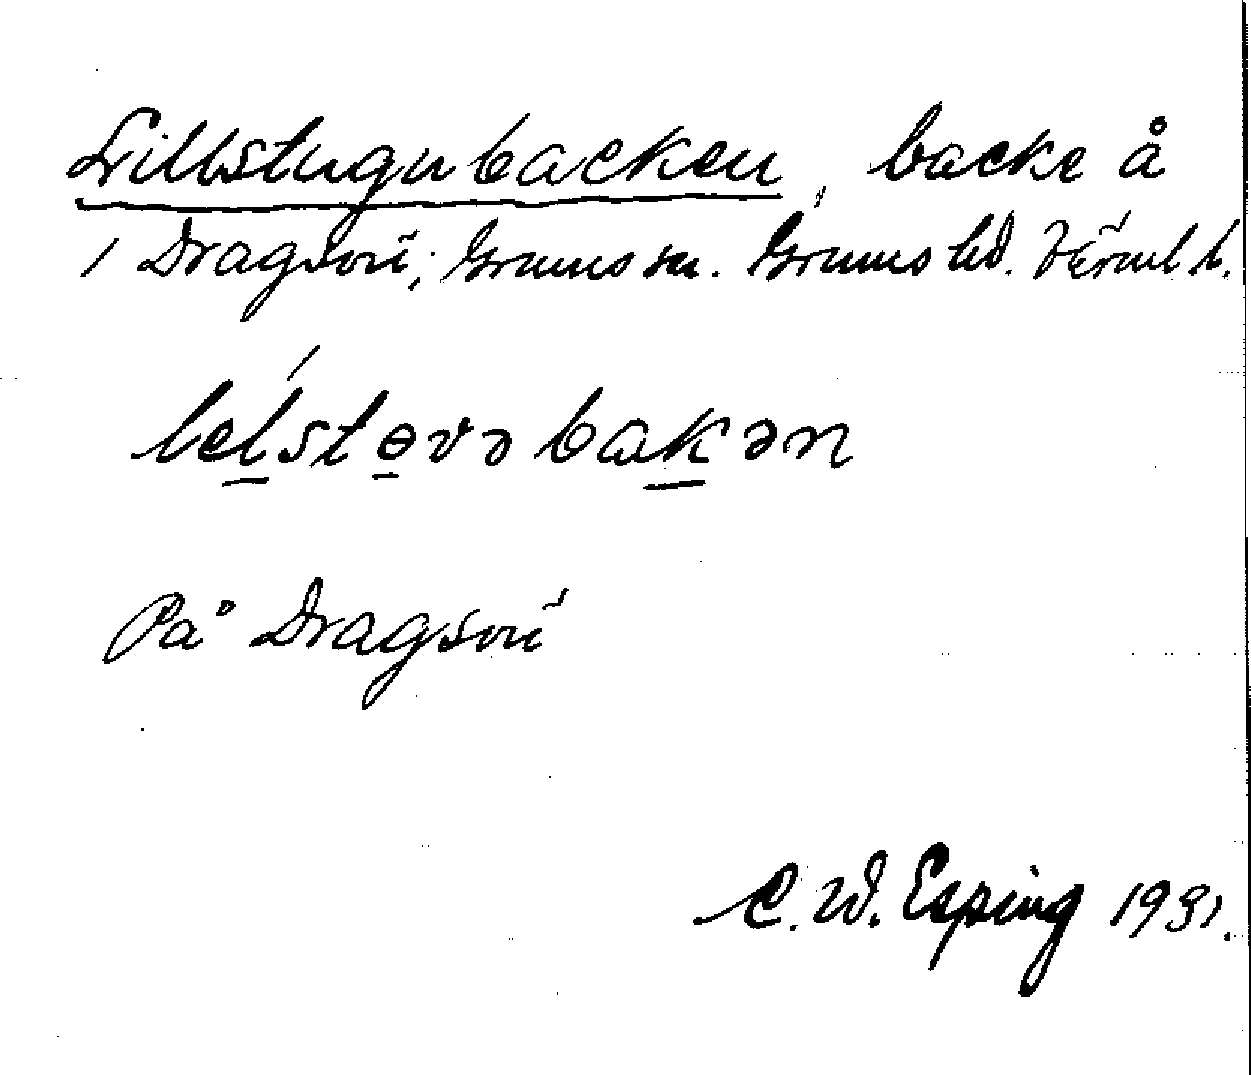 Lillstugubacken, backe å
1 Dragsön, Grums sn. Grums hd. Värml l.
lelstɵvə bakən
På Dragsön
C. W. Esping 1931.